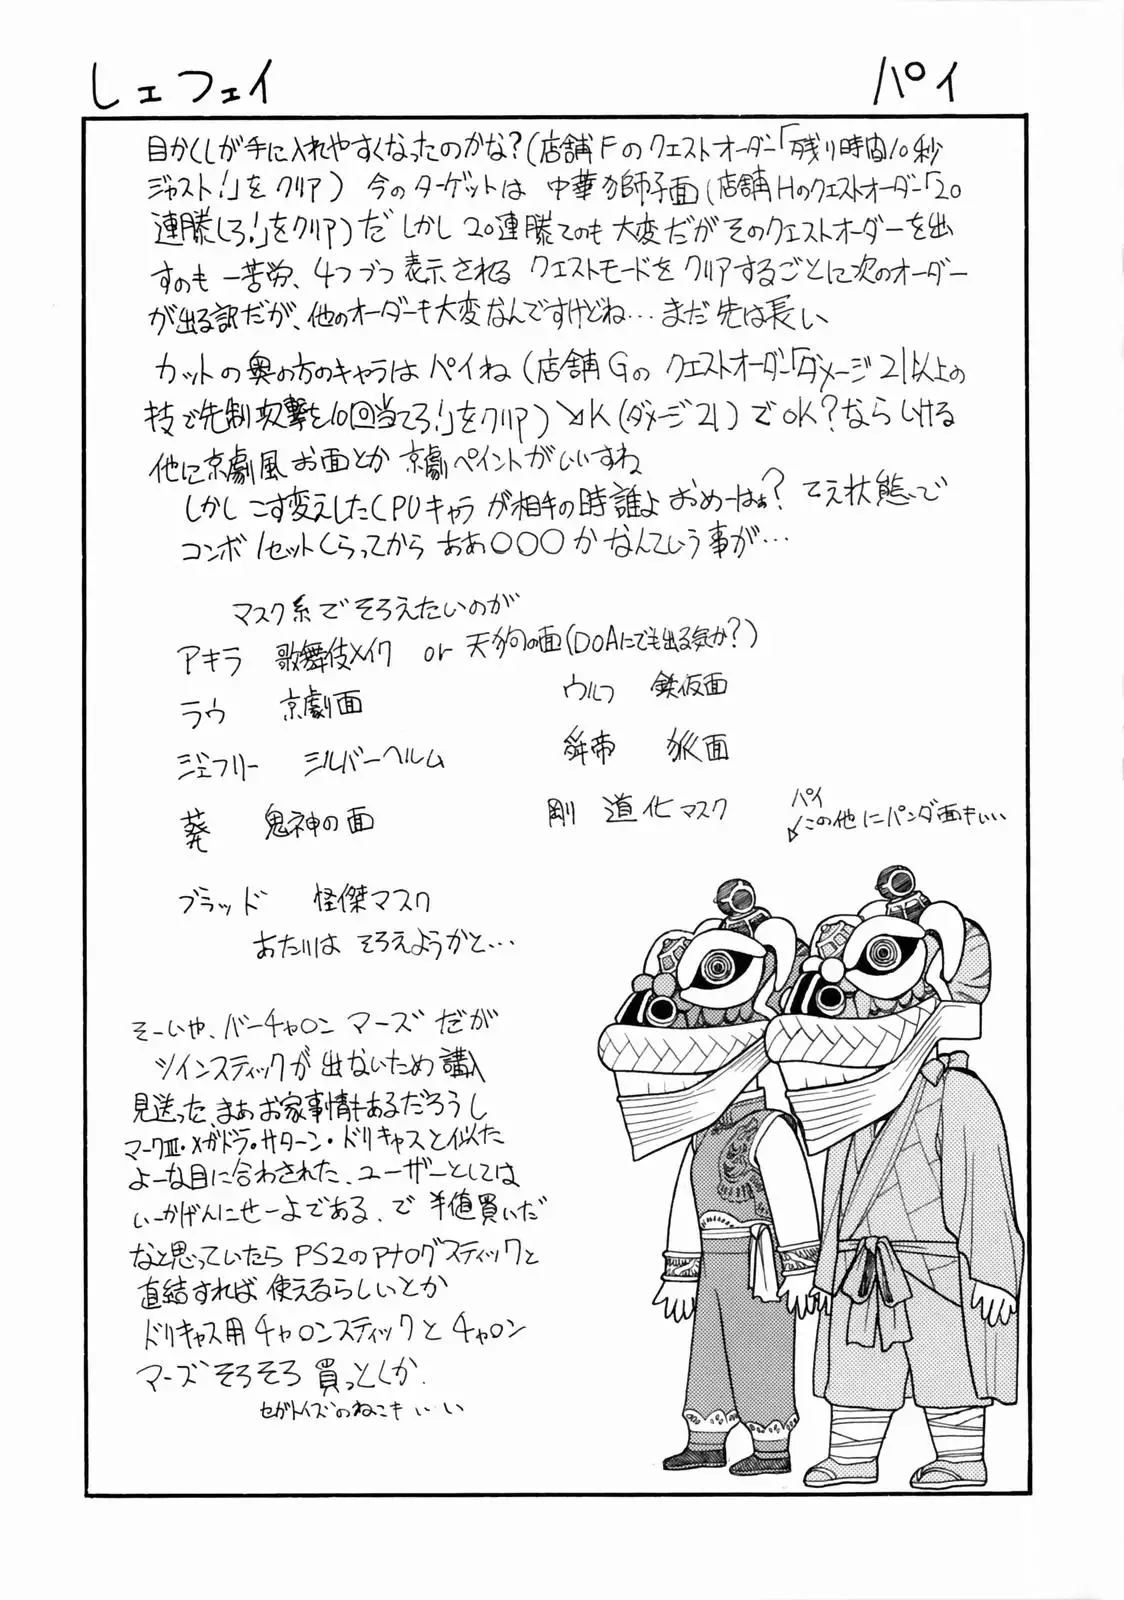 しェフェイ
パイ
目かくしが手に入れやすくなったのかな?(店舗Fのクエストオーダー「残り時間10秒
ジャスト!」をクリア) 今のターゲットは 中華の獅子面(店舗Hのクエストオーダー「20
連勝しろ!」をクリア)だ しかし 20連勝てのも 大変だが そのクエストオーダーを出
すのも 一苦労、4つづつ 表示される クエストモードを クリアするごとに次のオーダー
が出る訳だが、他のオーダーも大変なんですけどね… まだ 先は長い
カットの奥の方のキャラは パイね (店舗Gの クエストオーダー「ダメージ21以上の
技で先制攻撃を10回当てろ!」をクリア) ↘K(ダメージ21) でOK?なら いける
他に京劇風 お面とか 京劇ペイントがいいすね
しかし こす変えしたCPUキャラ が相手の時 誰よ おめーはぁ? てえ状態で
コンボ1セットくらってから ああ○○○か なんていう事が…
マスク系で そろえたいのが
アキラ 歌舞伎メイク or 天狗の面(DOAにでも出る気か?)
ラウ 京劇面
ウルフ 鉄仮面
ジェフリー シルバーヘルム
舜帝 狐面
葵 鬼神の面
剛 道化マスク
パイ
↙この他にパンダ面もいい
ブラッド 怪傑マスク
あたりは そろえようかと…
そーいや、バーチャロン マーズ だが
ツインスティックが 出ないため 購入
見送った、まあお家事情もあるだろうし
マークⅢ・メガドラ・サターン・ドリキャスと似た
よーな目に合わされた、ユーザーとしては
いーかげんにせーよである、で 半値買いだ
なと思っていたら PS2のアナログスティックと
直結すれば 使えるらしいとか
ドリキャス用 チャロンスティックと チャロン
マーズ そろそろ 買っとくか、
セガトイズのねこもいい